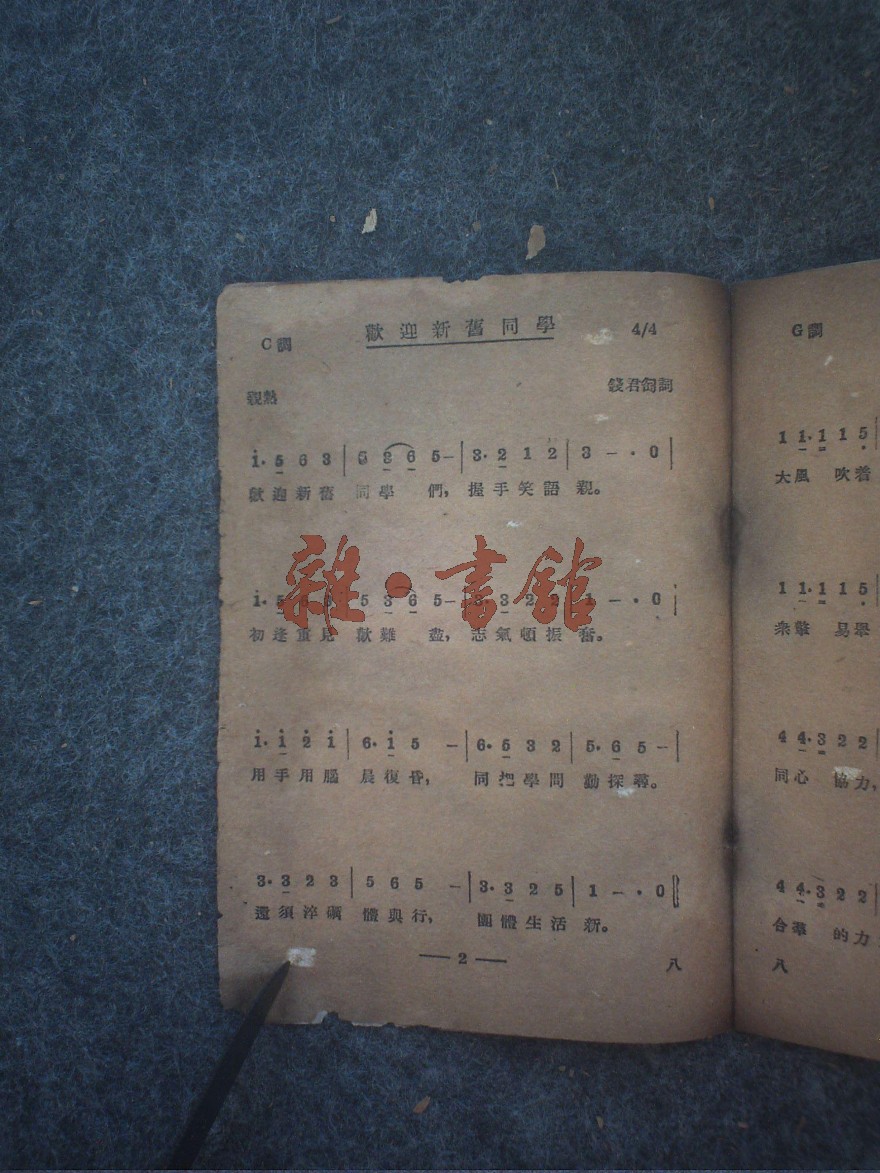 歡迎新舊同學
C調 4/4
親熱 錢君匋詞
i. 5 6 3 | 5 3 6 5 — | 3. 2 1 2 | 3 — . 0 |
歡迎新舊 同學 們, 握手笑語 親。
雜·書館
i. 5 6 3 | 5 3 6 5 — | 3. 3 2 2 | 1 — . 0 |
初逢重見 歡難 盡, 志氣頓振 奮。
i. i 2 i | 6. i 5 — | 6. 5 3 2 | 5. 6 5 — |
用手用腦 晨復昏, 同把學問 勤探尋。
3. 3 2 3 | 5 6 5 — | 3. 3 2 5 | 1 — . 0 ‖
還須淬礪 體與行, 團體生活 新。
— 2 — 八
G調
1 1. 1 1 5
大風 吹着
1 1. 1 1 5
衆擎 易舉
4 4. 3 2 2
同心 協力,
4 4. 3 2 2
合羣 的力
八